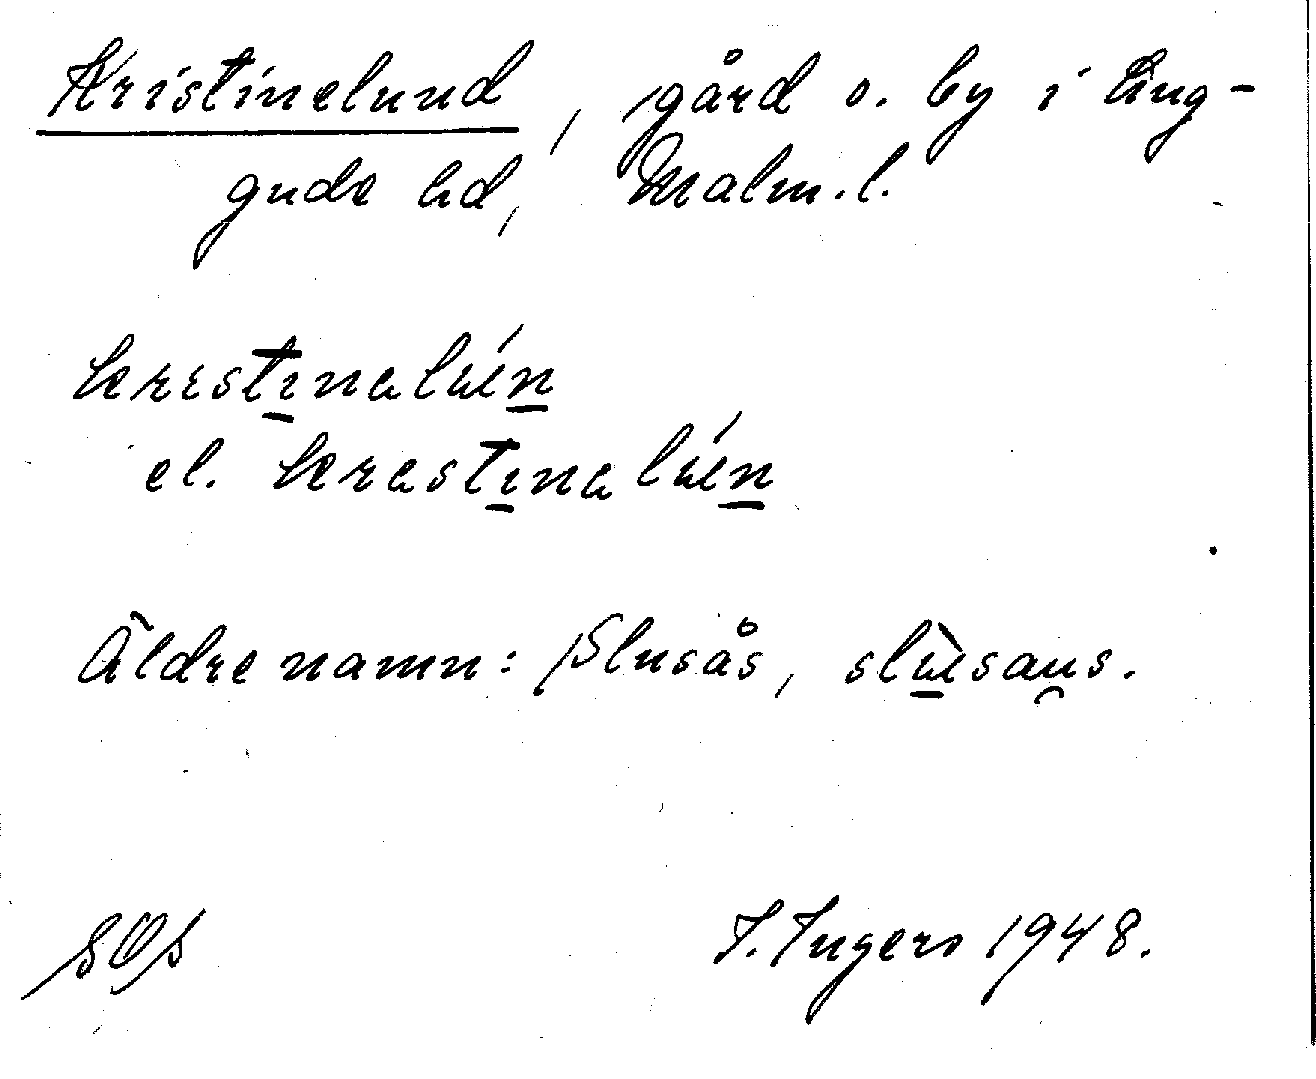 Kristinelund, gård o. by i Ling-
gude hd, Malm. l.
krıstınalún
el. krastınalún
Äldre namn: Slusås, slùsaus.
SOS
I. Ingers 1948.